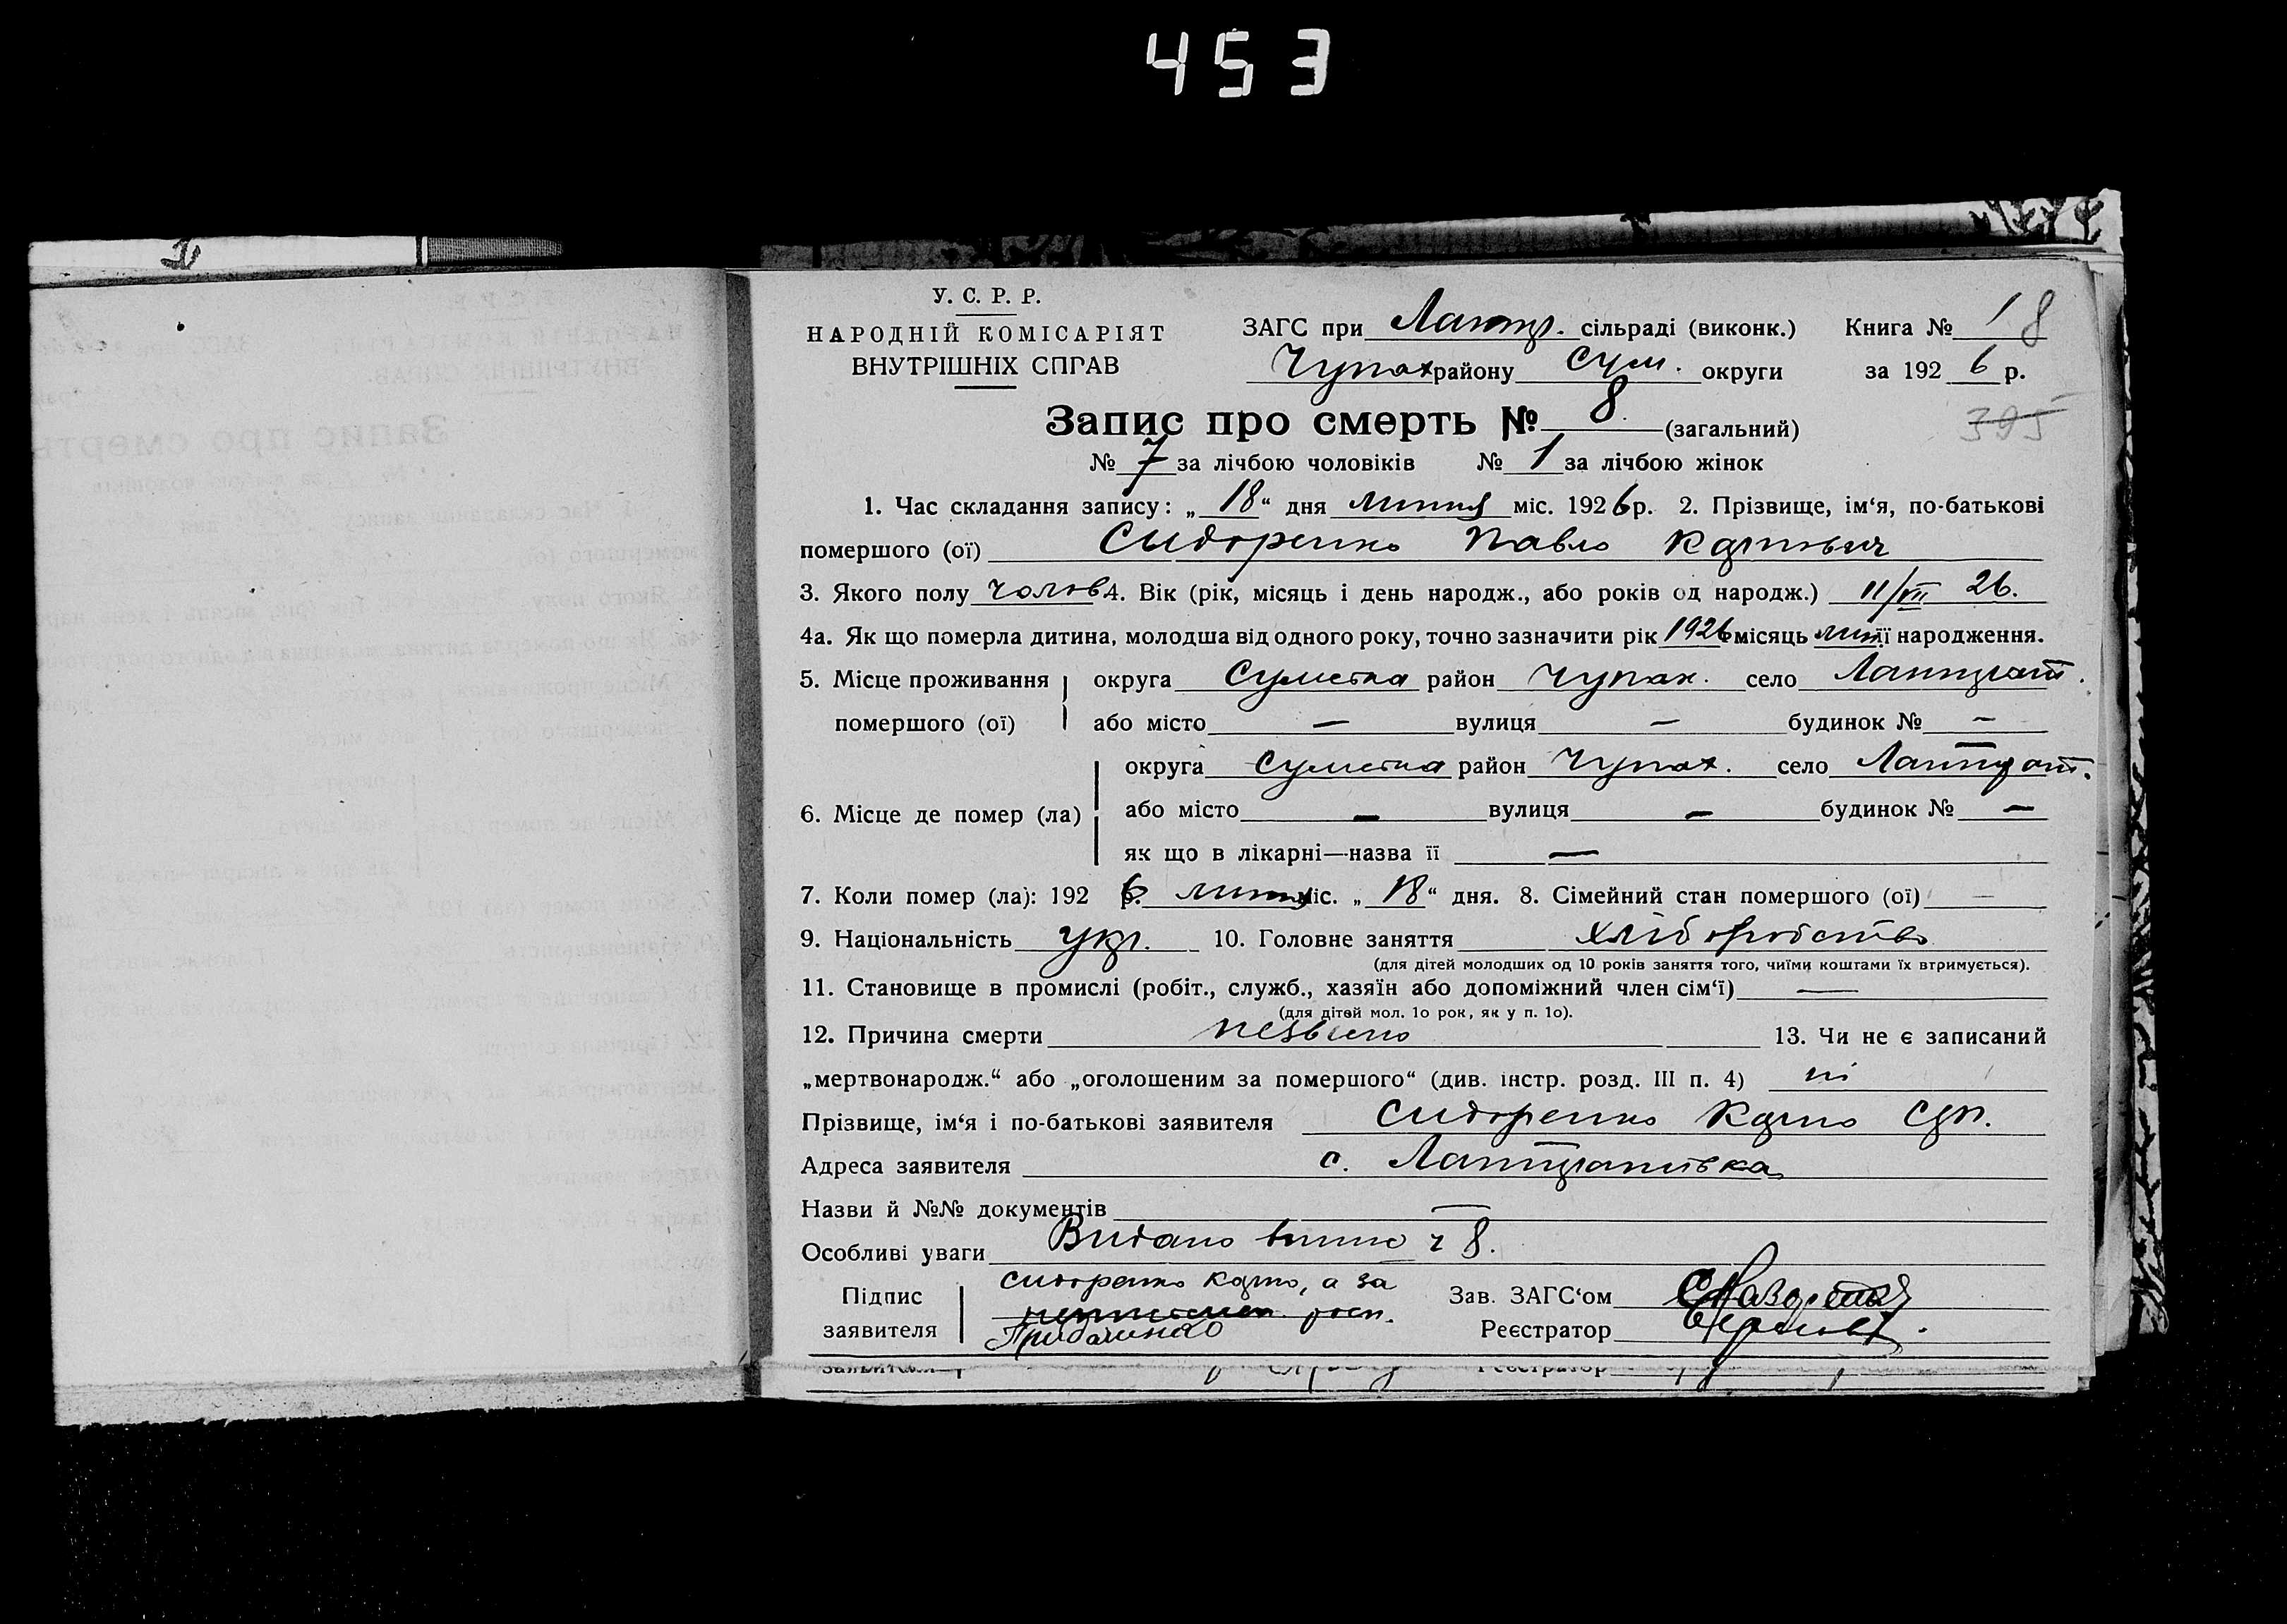 453
У. С. Р. Р.
НАРОДНІЙ КОМІСАРІЯТ
ВНУТРІШНІХ СПРАВ
ЗАГС при сільраді (виконк.) Книга № 1 8
Чупах району Сум. округи за 1926 р.
Запис про смерть № 8 (загальний)
395
№ 7 за лічбою чоловіків № 1 за лічбою жінок
1. Час складання запису: „18“ дня липня міс. 1926 р. 2. Прізвище, ім‘я, по-батькові
помершого (ої) Сидоренко Павло Карпович
3. Якого полу чолов 4. Вік (рік, місяць і день народж., або років од народж.) 11/VII 26.
4а. Як що померла дитина, молодша від одного року, точно зазначити рік 1926 місяць лип її народження.
5. Місце проживання помершого (ої) округа Сумська район Чупах. село
або місто — вулиця — будинок № —
6. Місце де помер (ла) округа Сумська район Чупах. село
або місто — вулиця — будинок № —
як що в лікарні—назва її —
7. Коли помер (ла): 1926 р. липня міс. „18“ дня. 8. Сімейний стан помершого (ої) —
9. Національність укр. 10. Головне заняття хліборобство
(для дітей молодших од 10 років заняття того, чиїми коштами їх втримується).
11. Становище в промислі (робіт., служб., хазяїн або допоміжний член сім‘ї) —
(для дітей мол. 1о рок, як у п. 1о).
12. Причина смерти невідомо 13. Чи не є записаний
„мертвонародж.“ або „оголошеним за помершого“ (див. інстр. розд. III п. 4) ні
Прізвище, ім‘я і по-батькові заявителя Сидоренко Карпо
Адреса заявителя с.
Назви й №№ документів —
Особливі уваги Видано 8.
Підпис заявителя Сидоренко Карпо, а за
Зав. ЗАГС‘ом
Реєстратор
заявителя Реєстратор